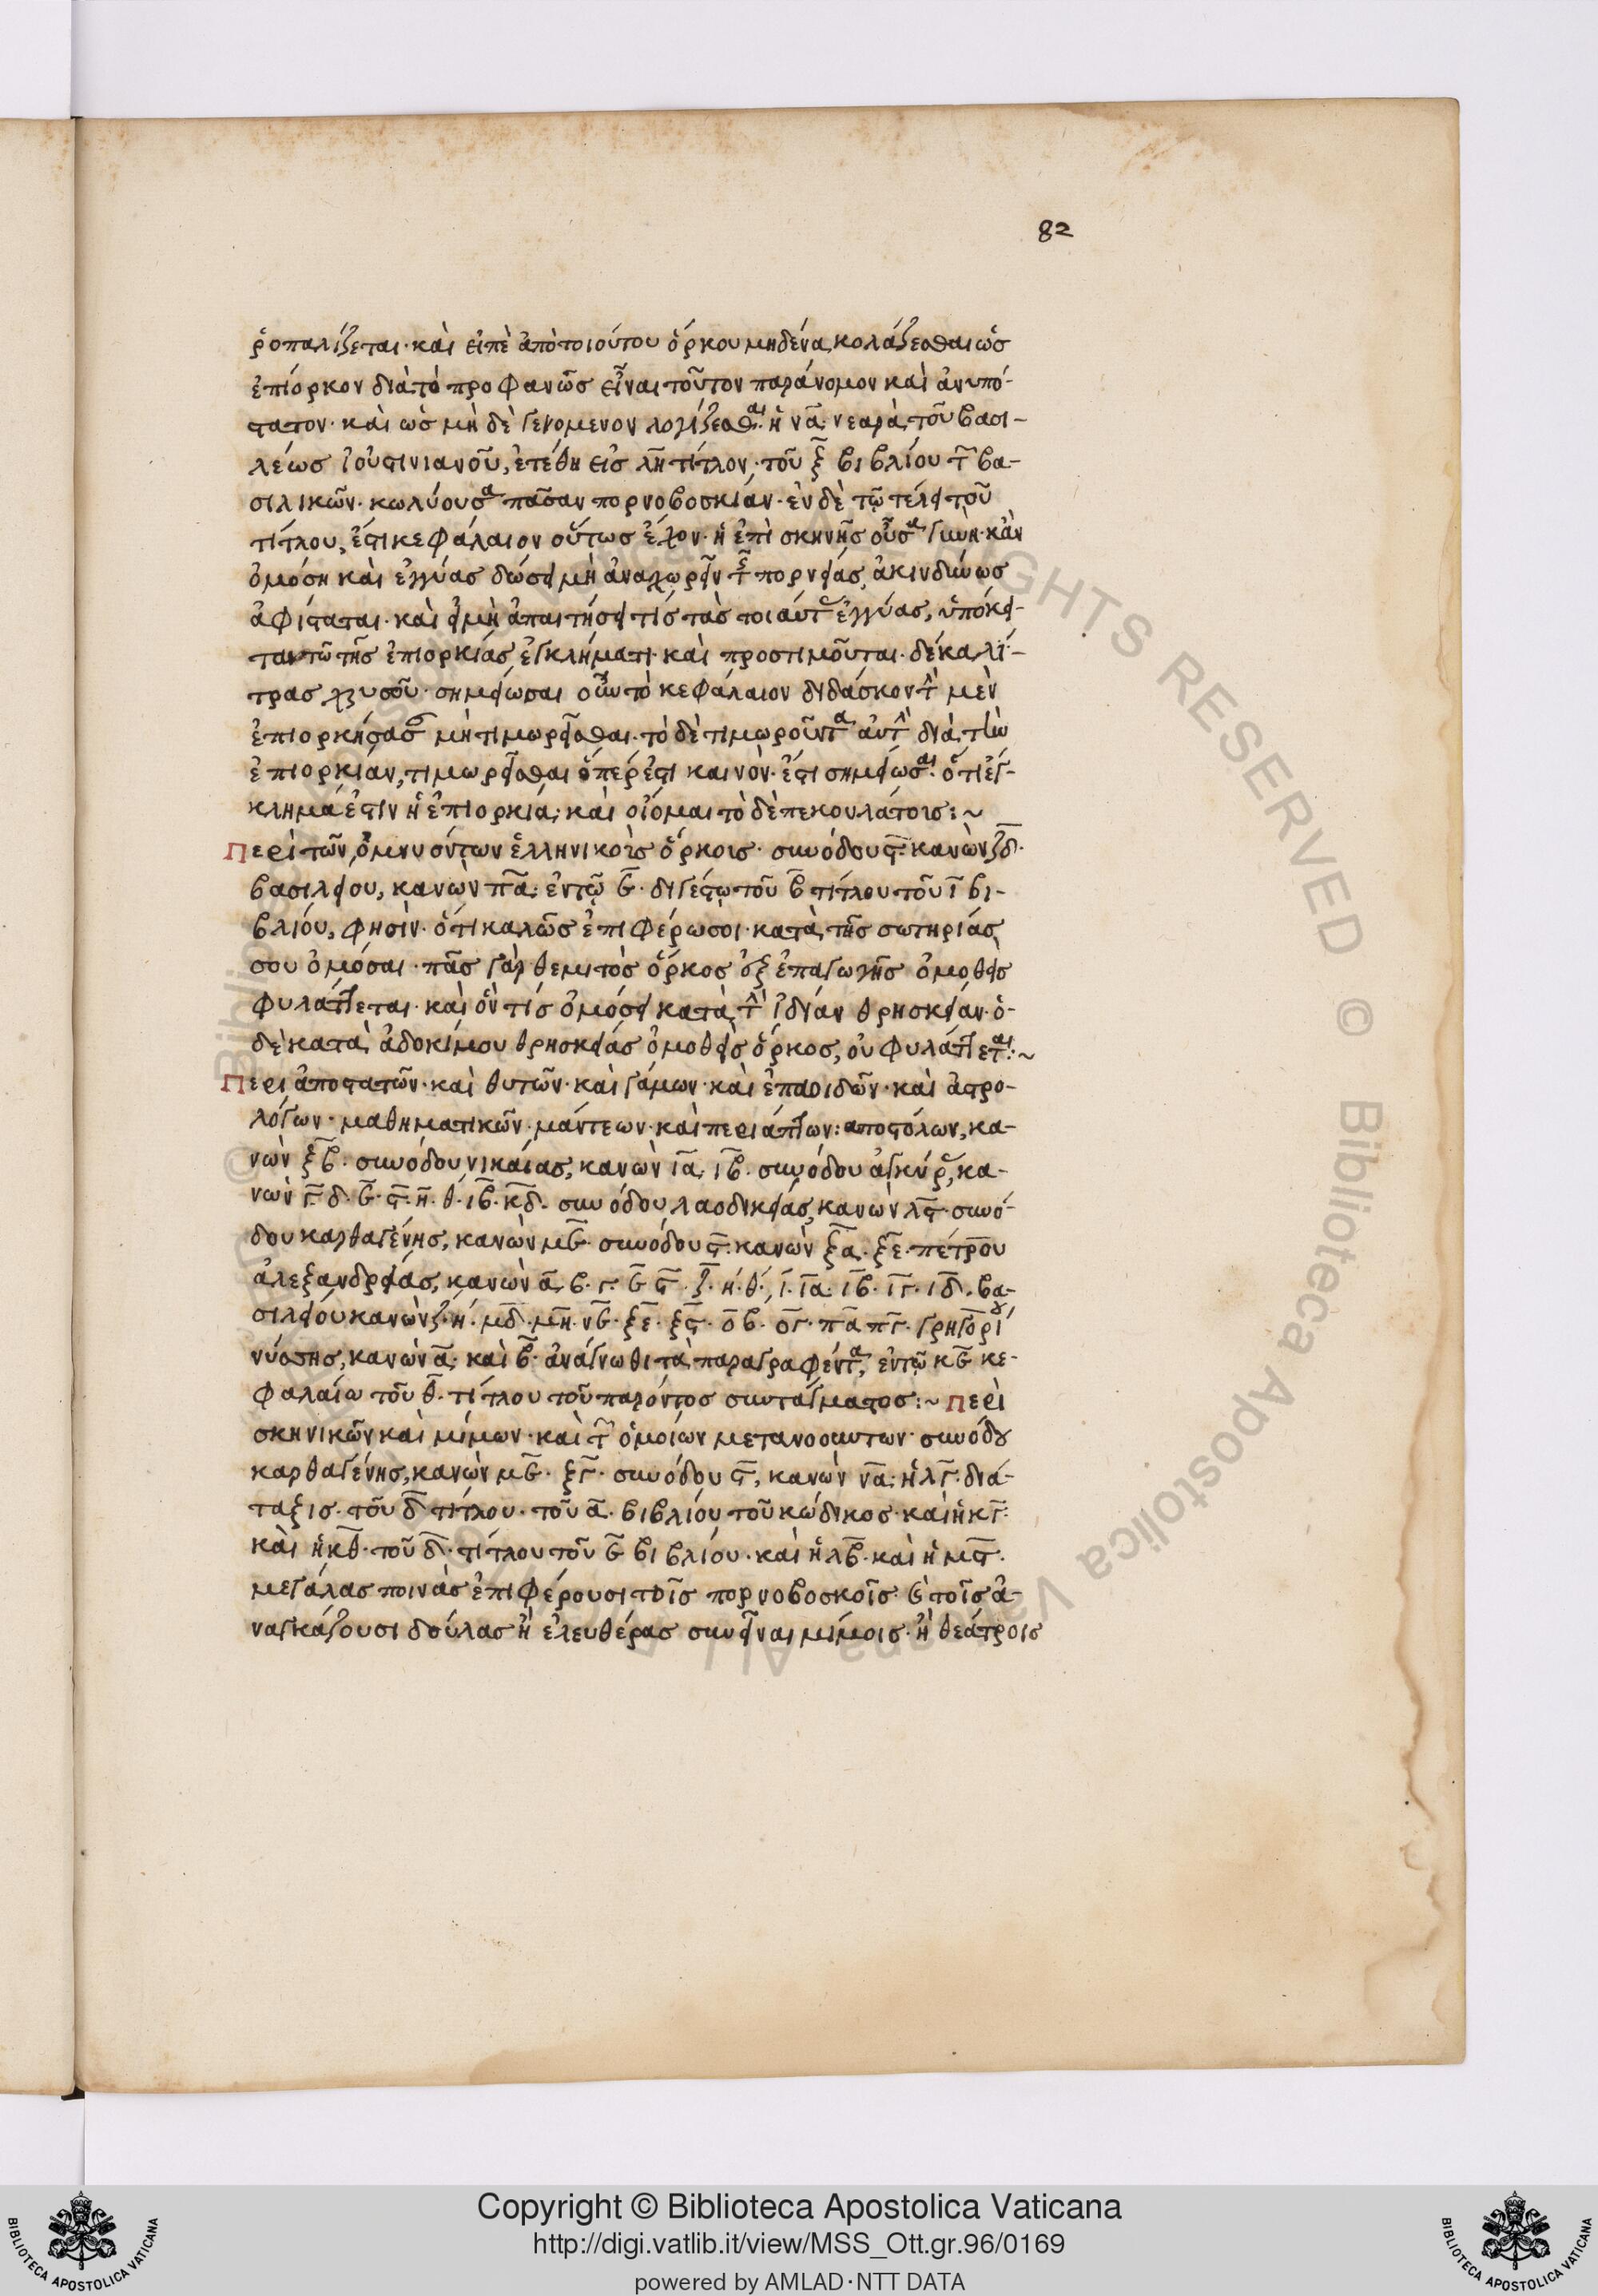 82
ῥοπαλίζεται· καὶ εἰπὲ ἀπὸ τοιούτου ὅρκου μηδένα κολάζεσθαι ὡς
ἐπίορκον διὰ τὸ προφανῶς εἶναι τοῦτον παράνομον καὶ ἀνυπό-
στατον· καὶ ὡς μὴ δὲ γενομενον λογίζεσθαι· ἡ να̅ νεαρὰ τοῦ βασι-
λέως ἰουστινιανοῦ, ἐτέθη εἰς λη̅ τίτλον τοῦ ξ̅ βιβλίου τ̅ βα-
σιλικῶν· κωλύουσα πᾶσαν πορνοβοσκίαν· ἐν δὲ τῷ τέλει τοῦ
τίτλου, ἔστι κεφάλαιον οὕτως ἔχον· ἡ ἐπὶ σκηνῆς οὖσα γυνὴ· κἂν
ὁμόση καὶ ἐγγύας δώσει μὴ ἀναχωρεῖν τῆς πορνείας, ἀκινδύνως
ἀφίσταται· καὶ εἰ μὴ ἀπαιτήσει τίς τὰς τοιαύτας ἐγγύας, ὑπόκει-
ται τῶ τῆς ἐπιορκίας ἐγκλήματι· καὶ προστιμοῦται· δέκα λί-
τρας χρυσοῦ· σημείωσαι οὖν τὸ κεφάλαιον διδάσκον τὴν μὲν
ἐπιορκήσασαν μὴ τιμωρεῖσθαι· τὸ δὲ τιμωροῦντα αὐτὴν διὰ τὴν
ἐπιορκίαν, τιμωρεῖσθαι ὅπερ ἐστι καινὸν· ἔστι σημείωσαι· ὅτι ἔγ-
κλημα ἐστιν ἡ ἐπιορκία· καὶ οἶομαι τὸ δὲ πεκουλάτοις:~
Περὶ τῶν ὀμνυόντων ἑλληνικοὶς ὅρκοις· συνόδου ϛ̅· κανὼν ϟδ̅·
βασιλείου, κανὼν πα̅· ἐν τῷ ε̅· διγέστω τοῦ β̅ τίτλου τοῦ ι̅ βι-
βλίου, φησὶν· ὅτι καλῶς ἐπιφέρω σοι· κατὰ τῆς σωτηρίας
σου ὀμόσαι· πᾶς γὰρ θεμιτὸς ὅρκος ἐξ ἐπαγωγῆς ὀμοθεὶς
φυλάττεται· καὶ ὃν τίς ὀμόσει κατὰ τὴν ἰδίαν θρησκείαν· ὁ
δὲ κατὰ ἀδοκίμου θρησκείας ὀμοθεὶς ὅρκος, οὐ φυλάττεται:~
Περι ἀποστατῶν· καὶ θυτῶν· καὶ γάμων· καὶ ἐπαοιδῶν· καὶ ἀστρο-
λόγων· μαθηματικῶν· μάντεων· καὶ περιάπτων: αποστόλων, κα-
νὼν ξβ̅· συνόδου νικαίας, κανὼν ια̅, ιβ̅· συνόδου ἀγκύρας, κα-
νὼν γ̅· δ· ε̅· ϛ̅· η̅· θ· ιβ̅· κδ̅· συνόδου λαοδικείας, κανὼν λϛ̅· συνό-
δου καρθαγένης, κανὼν με̅· συνόδου ϛ̅· κανὼν ξα̅· ξε̅· πέτρου
ἀλεξανδρείας, κανὼν α̅, β· γ· ε̅ ϛ̅· ζ̅· η· θ· ι· ια̅· ιβ̅· ιγ̅· ιδ̅· βα-
σιλείου κανὼν ζ· η· μδ̅· μη̅· νε̅· ξε̅· ξϛ̅· οβ̅· ογ̅· πα̅ πγ̅· γρηγορίου
νύσσης, κανὼν α̅· καὶ β̅· ἀνάγνωθι τὰ παραγραφέντα, ἐν τῷ κε̅ κε-
φαλαίω τοῦ θ̅· τίτλου τοῦ παρόντος συντάγματος:~ Περὶ
σκηνικῶν καὶ μίμων· καὶ τ̅ ὁμοίων μετανοουντων· συνόδου
καρθαγένης, κανὼν με̅· ξγ̅· συνόδου ϛ̅, κανὼν να̅· ἡ λγ̅· διά-
ταξις· τοῦ δ̅ τίτλου· τοῦ α̅· βιβλίου τοῦ κώδικος· καὶ ἡ κγ̅·
καὶ ἡ κθ̅· τοῦ δ̅· τίτλου τοῦ ε̅ βιβλίου· καὶ ἡ λβ̅· καὶ ἡ μϛ̅·
μεγάλας ποινὰς ἐπιφέρουσι τοῖς πορνοβοσκοῖς· καὶ τοῖς ἀ-
ναγκάζουσι δούλας ἢ ἐλευθέρας συνεῖναι μίμοις· ἢ θεάτροις
Copyright © Biblioteca Apostolica Vaticana
http://digi.vatlib.it/view/MSS_Ott.gr.96/0169
powered by AMLAD·NTT DATA